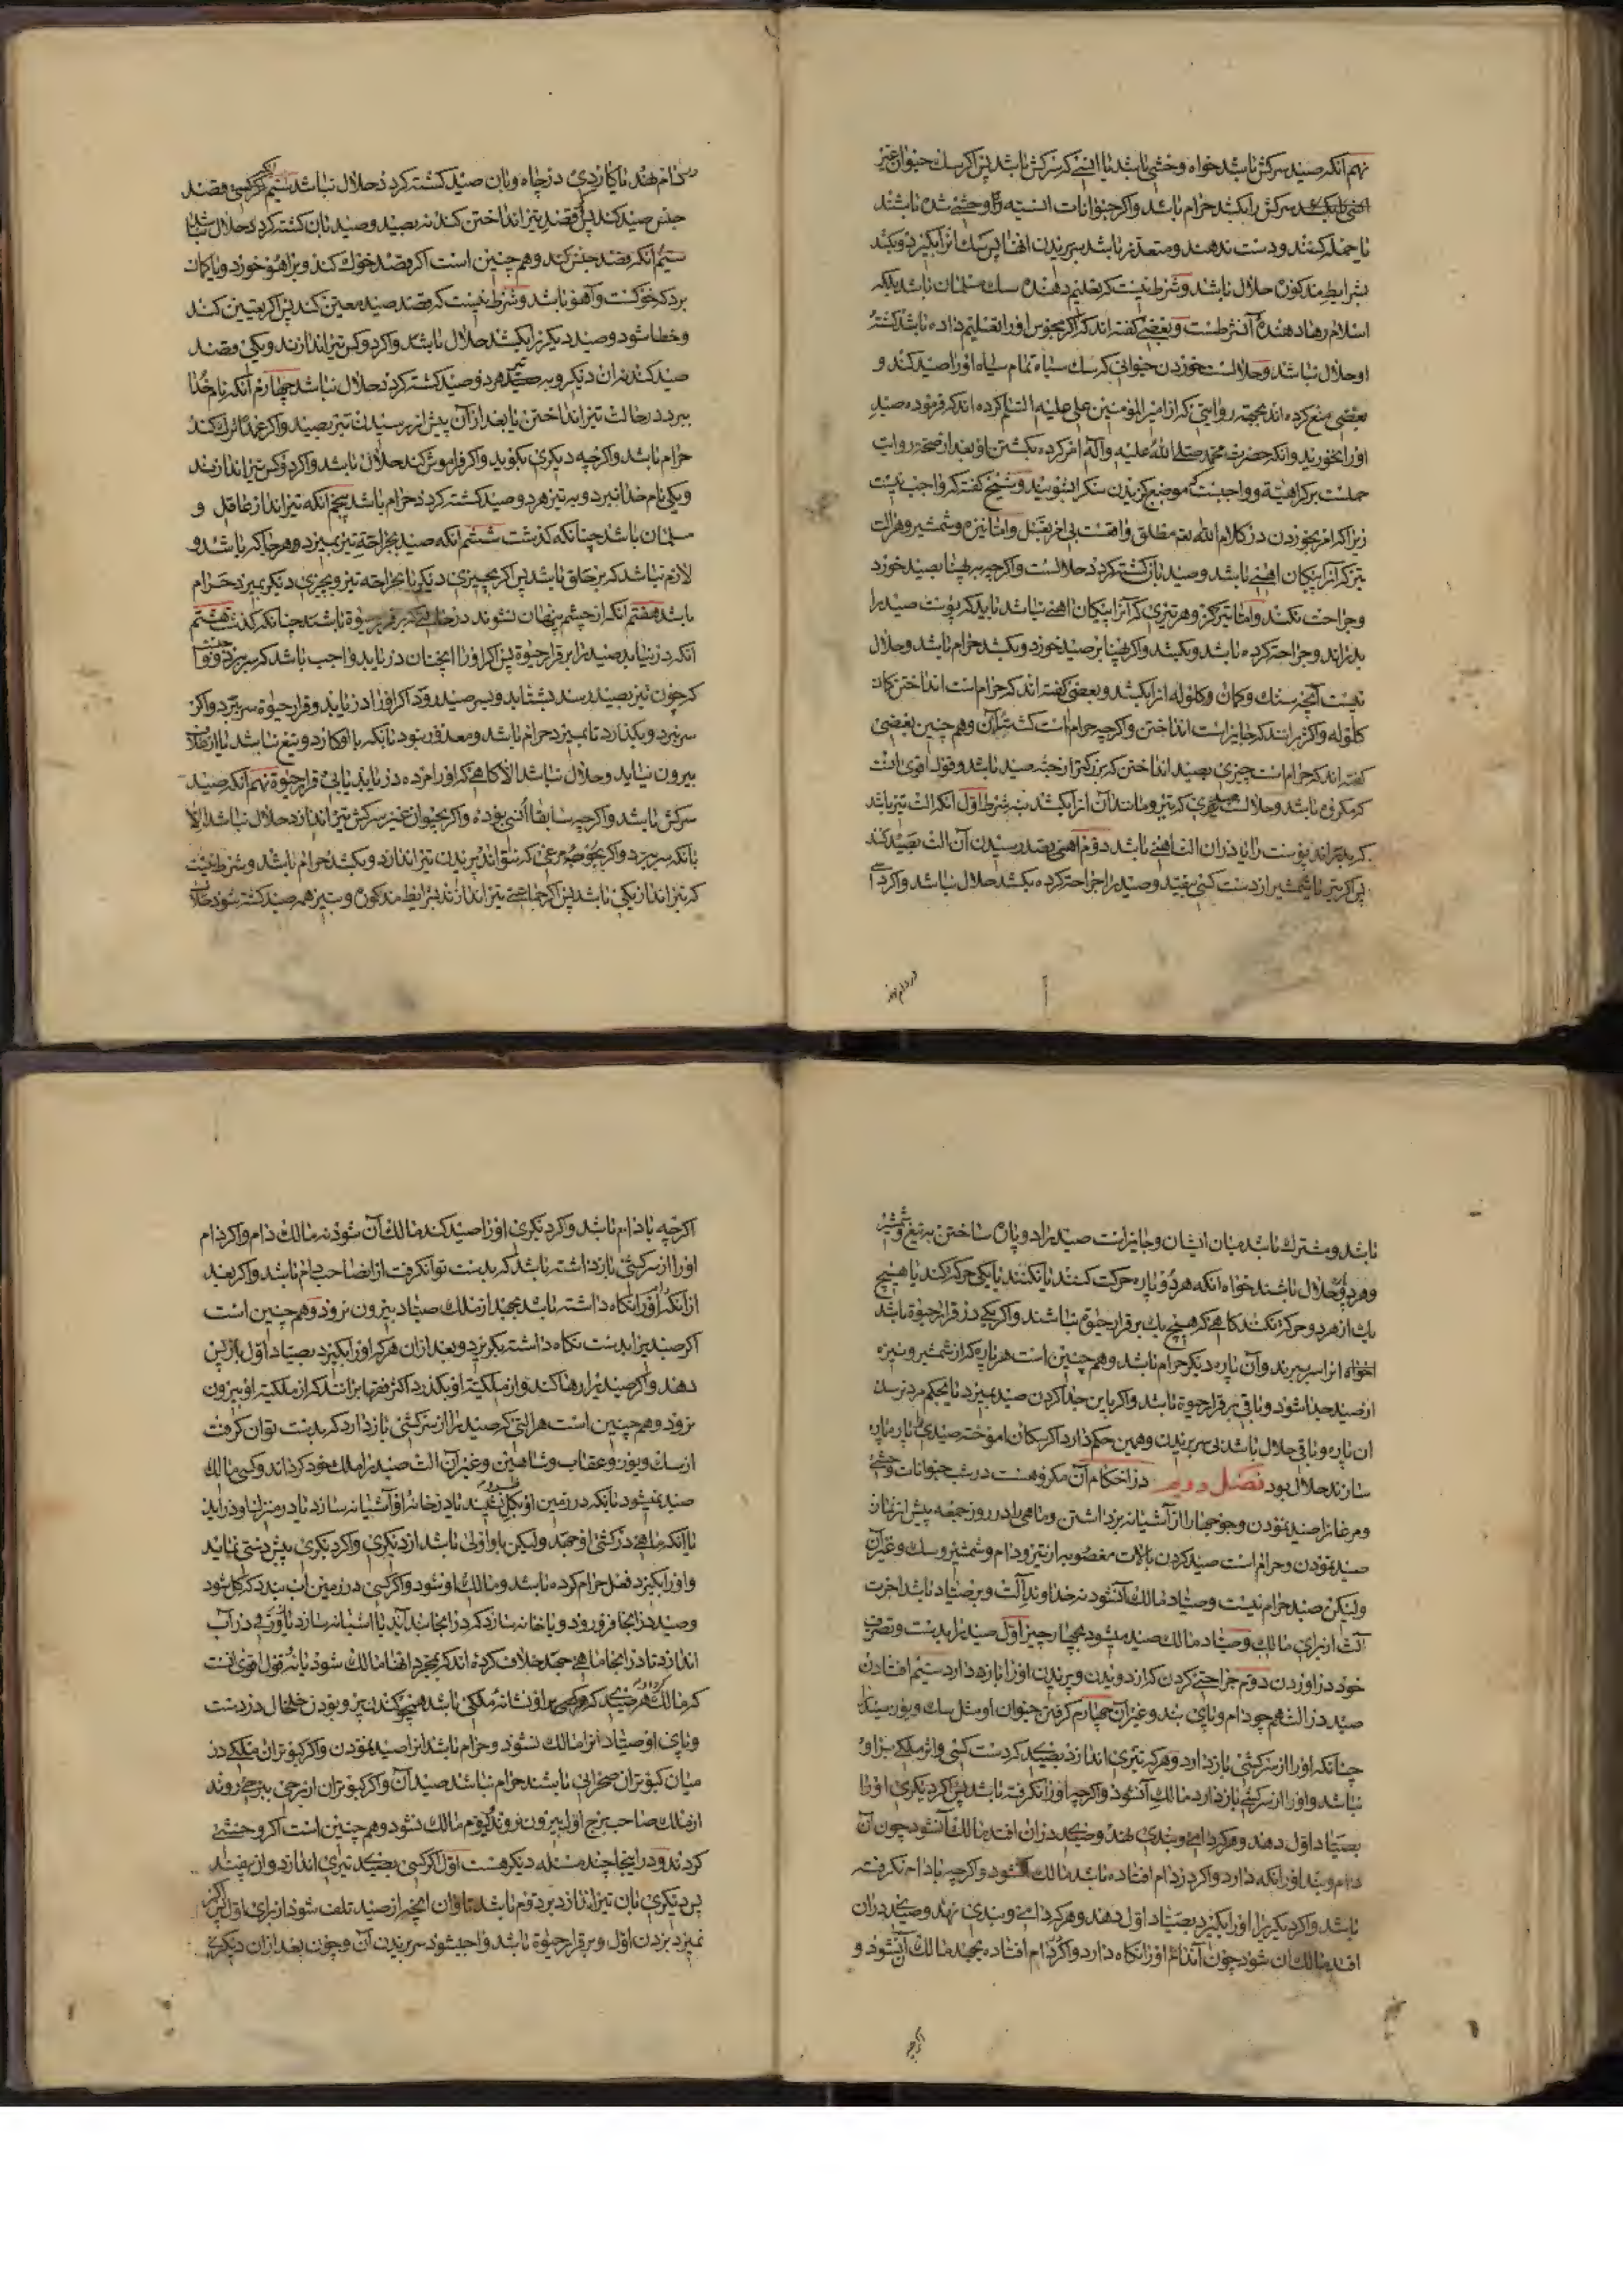 نهم آنکه صید سرکش باشد خواه وحشی باشد یا انسی که سرکش باشد پس اکر سک حیوان غیر
سرکش را بکشد حرام باشد واکر حیوانات انسیه وحشی شده باشند
یا حمله کنند ودست ندهند ومتعذر باشد سر بریدن انها پس سک انرا بکیرد وبکشد
بشرایط مذکوره حلال باشد وشرط نیست که تعلیم دهنده سک مسلمان باشد بلکه
اسلام رها دهنده آن شرطست وبعضی کفته اند که اکر مجوس اورا تعلیم داده باشد کشته
او حلال نباشد وحلالست خوردن حیوانی که سک سیاه تمام سیاه اورا صید کند و
بعضی منع کرده اند بجهة روایتی که از امیر المؤمنین علی علیه السلم کرده اند که فرموده صید
اورا نخورید وانکه حضرت محمد صلی الله علیه وآله امر کرده بکشتن او وبعد از صحة روایت
حملست بر کراهیة و واجبست که موضع کزیدن سک را بشویند وشیخ کفته که واجب نیست
زیرا که امر بخوردن در کلام الله تعه مطلق واقعست بی امر بغسل واما نیزه وشمشیر وهر الت
تیز که آنرا پیکان اهنی باشد وصید بان کشته کردد حلالست واکرچه بر پهنا بصید خورد
وجراحت نکند واما تیر کز وهر تیری که آنرا پیکان اهنی نباشد باید که پوست صید را
بدراند وجراحت کرده باشد وبکشد واکر بپهنا بر صید خورد وبکشد حرام باشد وحلال
نیست آنچه سنک وکمان وکلوله انرا بکشد وبعضی کفته اند که حرام است انداختن کمان
کلوله واکثر برانند که جایز است انداختن واکرچه حرام است کشته آن وهم چنین بعضی
کفته اند که حرام است چیزی بصید انداختن که بزرکتر از جثه صید باشد وقول اقوی انست
که مکروه باشد وحلالست صیدی که تیر ومانند آن انرا بکشد بنه شرط اول انکه الت تیز باشد
که بدراند پوست را یا دران الت اهنی باشد دوم آنکه بقصد رسیدن آن الت بصید کند
پس اکر تیر یا شمشیر از دست کسی بیفتد وصید را جراحت کرده بکشد حلال نباشد واکر در
در دام نهد
در دام نهد یا کاردی در چاه وبان صید کشته کردد حلال نباشد سیم آنکه قصد
جنس صید کند پس اکر قصد تیر انداختن کند نه بصید وصید بان کشته کردد حلال نباشد
سیم آنکه قصد جنس کند وهم چنین است اکر قصد خوک کند وبر اهو خورد ویا کمان
برد که خوکست وآهو باشد وشرط نیست که قصد صید معین کند پس اکر تعیین کند
وخطا شود وصید دیکر را بکشد حلال باشد واکر دو کس تیر اندازند ویکی قصد
صید کند نه ان دیکر وبه تیر هر دو صید کشته کردد حلال نباشد چهارم آنکه نام خدا
ببرد در حالت تیر انداختن یا بعد از آن پیش از رسیدن تیر بصید واکر عمدا ترک کند
حرام باشد واکرچه دیکری بکوید واکر فراموش کند حلال باشد واکر دو کس تیر اندازند
ویکی نام خدا نبرد وبه تیر هر دو صید کشته کردد حرام باشد پنجم آنکه تیر انداز عاقل و
مسلمان باشد چنانکه کذشت ششم آنکه صید بجراحة تیر بمیرد وهر جا که باشد و
لازم نباشد که بر حلق باشد پس اکر بچیزی دیکر یا بجراحة تیر وبچیزی دیکر بمیرد حرام
باشد هفتم آنکه از چشم پنهان نشوند در حالتی که بر قرار حیوة باشند چنانکه کذشت هشتم
آنکه درنیابد صید را بر قرار حیوة پس اکر اورا انچنان دریابد واجب باشد که سر ببرد
که چون تیر بصید رسد بشتابد وبسر صید رود اکر اورا دریابد وقرار حیوة سر ببرد واکر
سر نبرد وبکذارد تا بمیرد حرام باشد ومعذور نبود بانکه با او کارد وتیغ نباشد یا از غلاف
بیرون نیاید وحلال نباشد الا کاهی که اورا مرده دریابد یا بی قرار حیوة نهم آنکه صید
سرکش باشد واکرچه سابقا انسی بوده واکر بحیوان غیر سرکش تیر اندازد حلال نباشد الا
بانکه سر ببرد واکر بجوجه مرغی که نتواند پریدن تیر اندازد وبکشد حرام باشد وشرط نیست
که تیر انداز یکی باشد پس اکر جماعتی تیر اندازند بشرایط مذکوره وبتیر همه صید کشته شود حلال
باشد ومشترک باشد میان ایشان وجایز است صید را دو پاره ساختن به تیغ وشمشیر
وهر دو حلال باشند خواه آنکه هر دو پاره حرکت کنند یا نکنند یا یکی حرکت کند یا هیچ
یک از هر دو حرکت نکنند کاهی که هیچ یک بر قرار حیوة نباشند واکر یکی در قرار حیوة باشد
انرا سر ببرند وآن پاره دیکر حرام باشد وهم چنین است هر پاره که از شمشیر ونیزه
از صید جدا شود وباقی بر قرار حیوة باشد واکر باین جدا کردن صید بمیرد یا بحکم مرده رسد
ان پاره وباقی حلال باشد بی سر بریدن وهمین حکم دارد اکر سکان اموخته صیدی را پاره پاره
سازند حلال بود فصل دویم در احکام آن مکروهست در شب حیوانات وحشی
ومرغانرا صید نمودن وجوجها را از آشیانه برداشتن وماهی را در روز جمعه پیش از نماز
صید نمودن وحرام است صید کردن بالات مغصوبه از تیر ودام وشمشیر وسک وغیر آن
ولیکن صید حرام نیست وصیاد مالک آن شود نه خداوند آلت وبر صیاد باشد اجرت
آلت از برای مالک وصیاد مالک صید میشود بچهار چیز اول صید را بدست وتصرف
خود در اوردن دوم جراحتی کردن که از دویدن وپریدن اورا بازدارد سیم افتادن
صید در الت همچو دام وپای بند وغیر آن چهارم کرفتن حیوان او مثل سک ویوز صید را
چنانکه اورا از سرکشی بازدارد وهر که تیری اندازد بصیدی که در دست کسی واثر ملک بر او
نباشد واورا از سرکشی بازدارد مالک آن شود واکرچه اورا نکرفته باشد پس اکر دیکری اورا
بصیاد اول دهند وهر که دامی وبندی نهد وصیدی دران افتد مالک آن شود چون آن
دام وبند اورا نکه دارد واکر در دام افتاده باشد مالک آن شود واکرچه با دام نکرفته
باشد واکر دیکری اورا بکیرد بصیاد اول دهند وهر که دامی وبندی نهد وصیدی دران
افتد مالک ان شود چون آن دام اورا نکاه دارد واکر در دام افتاده بجهد مالک آن شود و
اکرچه
اکرچه با دام باشد واکر دیکری اورا صید کند مالک آن شود نه مالک دام واکر دام
اورا از سرکشی بازداشته باشد که بدست توان کرفت از ان صاحب دام باشد واکر بعد
از آنکه اورا نکاه داشته باشد بجهد از ملک صیاد بیرون نرود وهم چنین است
اکر صید را بدست نکاه داشته بکریزد وبعد از ان هر که اورا بکیرد بصیاد اول باز پس
دهند واکر صید را رها کند واز ملکیة او بکذرد اکثر فقها برانند که از ملکیة او بیرون
نرود وهم چنین است هر التی که صید را از سرکشی بازدارد که بدست توان کرفت
از سک ویوز وعقاب وشاهین وغیر آن الت صید را ملک خود کرداند وکسی مالک
صید نمیشود بآنکه در زمین او بکل نشیند یا در خانه او آشیانه سازد یا در منزل او دراید
یا آنکه ماهی در کشتی او جهد ولیکن با او اولی باشد از دیکری واکر دیکری پیش دستی نماید
واورا بکیرد فعل حرام کرده باشد ومالک او شود واکر کسی در زمین اب بندد که کل شود
وصید در انجا فرو رود ویا خانه سازد که در انجا بند آید یا اشیانه سازد در آب
اندازد تا در انجا ماهی جهد خلاف کرده اند که بمجرد انها مالک شود یا نه قول اقوی انست
که مالک کردد هر صیدی که بر او نشانه ملکی باشد همچو کندن پر وبودن خلخال در دست
وپای او صیاد انرا مالک نشود وحرام باشد انرا صید نمودن واکر کبوتران ملکی در
میان کبوتران صحرائی باشند حرام نباشد صید آن واکر کبوتران از برجی ببرجی روند
از ملک صاحب برج اول بیرون نروند ودوم مالک نشود وهم چنین است اکر وحشی
کردند ودر اینجا چند مسئله دیکر هست اول اکر کسی بصیدی تیری اندازد واز بیفتد
پس دیکری بان تیر اندازد بر دوم باشد تاوان انچه از صید تلف شود از برای اول
نمیرد بزدن اول وبر قرار حیوة باشد واجب شود سر بریدن آن وچون بعد از ان دیکری